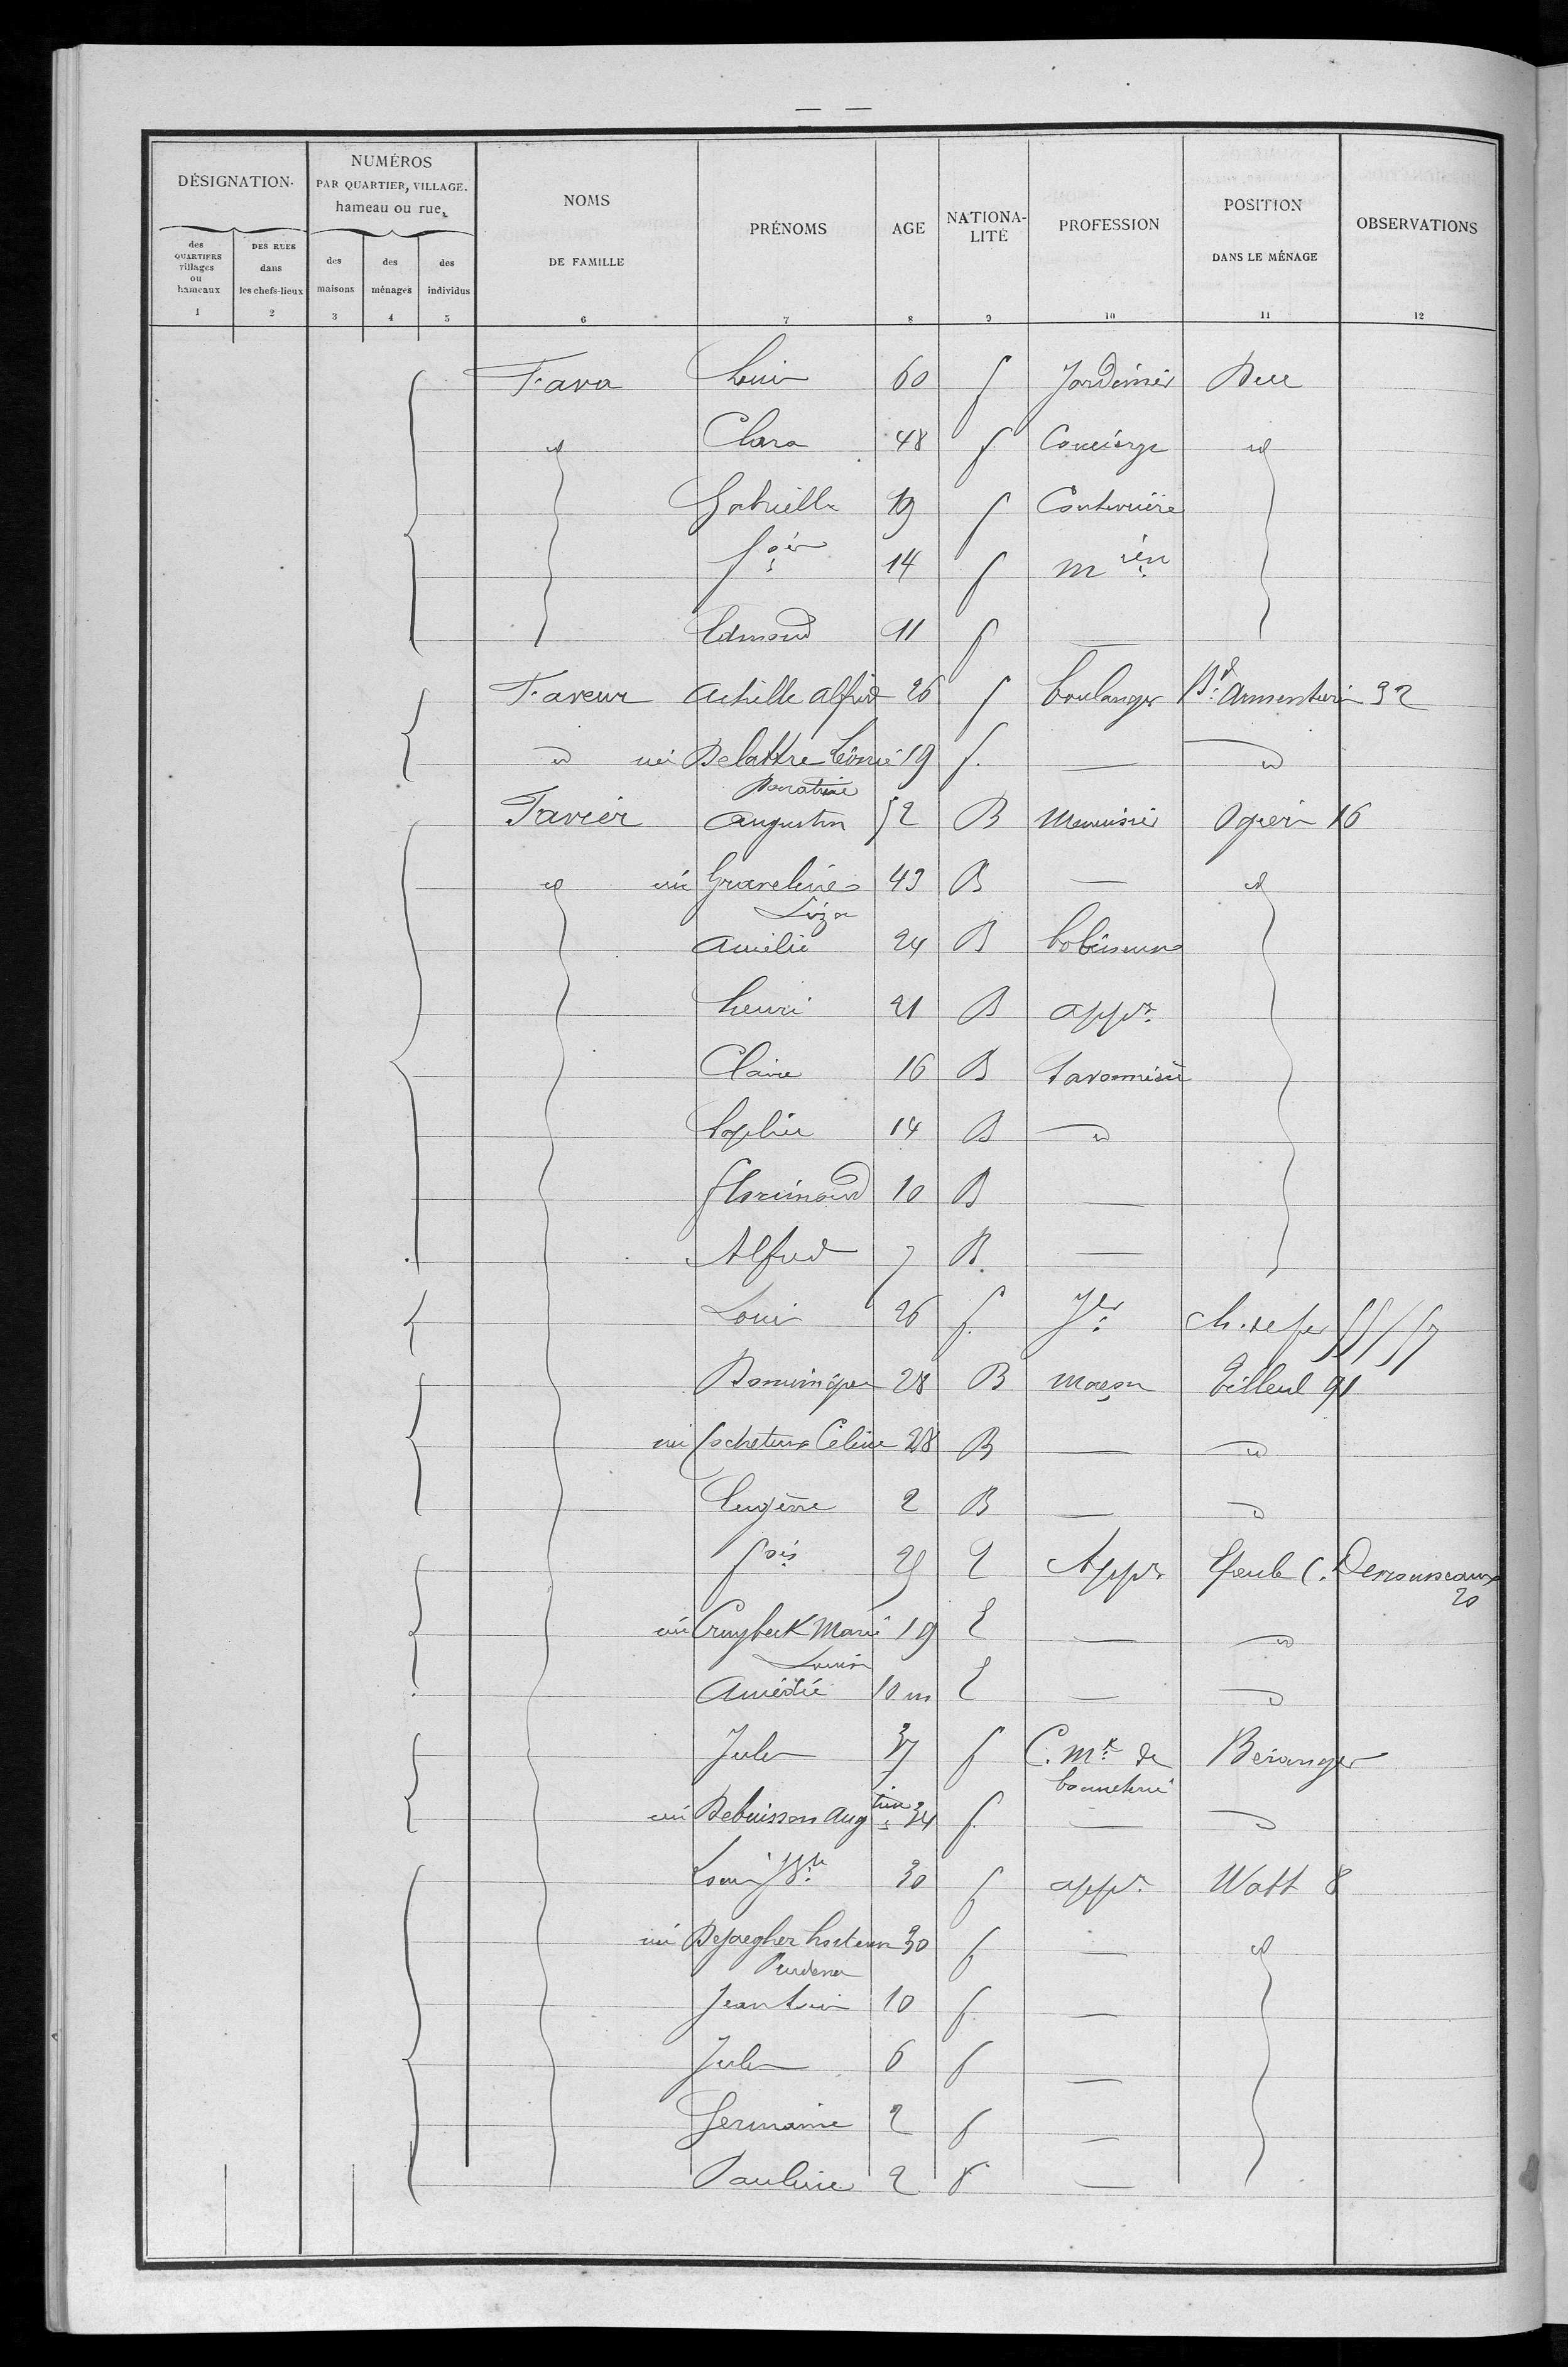 DÉSIGNATION.
NUMÉROS
PAR QUARTIER, VILLAGE.
hameau ou rue.
des QUARTIERS villages ou hameaux
DES RUES dans les chefs-lieux
des maisons
des ménages
des individus
NOMS DE FAMILLE
PRÉNOMS
AGE
NATIONA-LITÉ
PROFESSION
POSITION DANS LE MÉNAGE
OBSERVATIONS
1 2 3 4 5 6 7 8 9 10 11 12
Fava 60 f Jardinier
id Clara 48 f Concierge id
Gabrielle 19 f Couturière
14 f
Edmond 11 f —
Faveur Achille Alfred 26 f boulanger Bd Armentières 92
id née Delattre Léonie 19 f. — id
Donatine
Favier Augustin 52 B Menuisier Ogier 16
id née Gravelines 43 B — id
Liza
Amélie 24 B bobineuse
henri 21 B appr
Claire 16 B Savonnière
Sophie 14 B id
florimond 10 B —
Alfred 7 B —
Louis 26 f. Jer ch. de fer
Dominique 28 B maçon Tilleul 91
née Cocheteux Céline 28 B — id
Eugène 2 B — id
fois Appr C. Desrousseaux
20
née Cruybeck Marie 19 — id
Louise
Amédée 10 m — id
Jules 37 f C. Md de Béranger
bonneterie
née Debuisson Augtine 34 f. — id
Louis Bte 30 f appr Watt 8
née Dejaegher hortense 30 f — id
Jean Louis 10 f —
Jules 6 f —
Germaine 2 f —
Pauline 2 f —